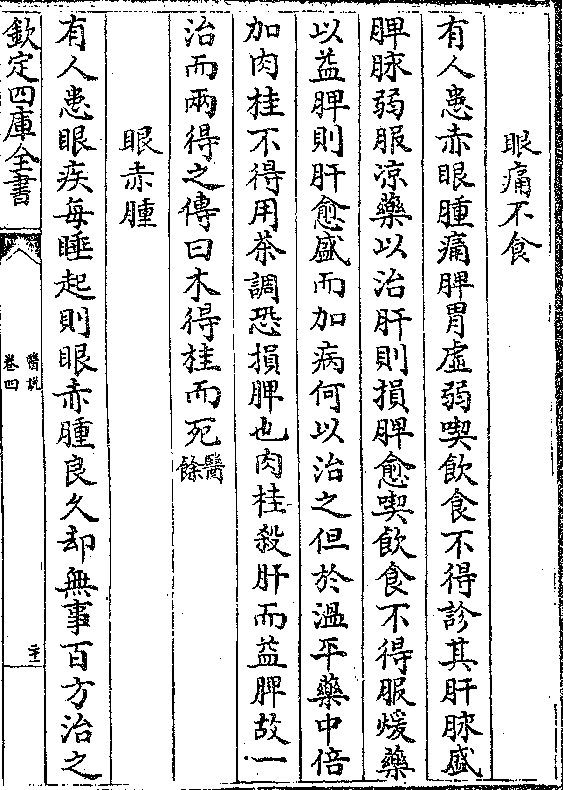 眼痛不食
有人患赤眼腫痛脾胃虛弱喫飲食不得診其肝脉盛
脾脉弱服涼藥以治肝則損脾愈喫飲食不得服煖藥
以益脾則肝愈盛而加病何以治之但於溫平藥中倍
加肉桂不得用茶調恐損脾也肉桂殺肝而益脾故一
治而兩得之傳曰木得桂而死醫餘
眼赤腫
有人患眼疾每睡起則眼赤腫良久却無事百方治之
欽定四庫全書
醫說
卷四
二十三